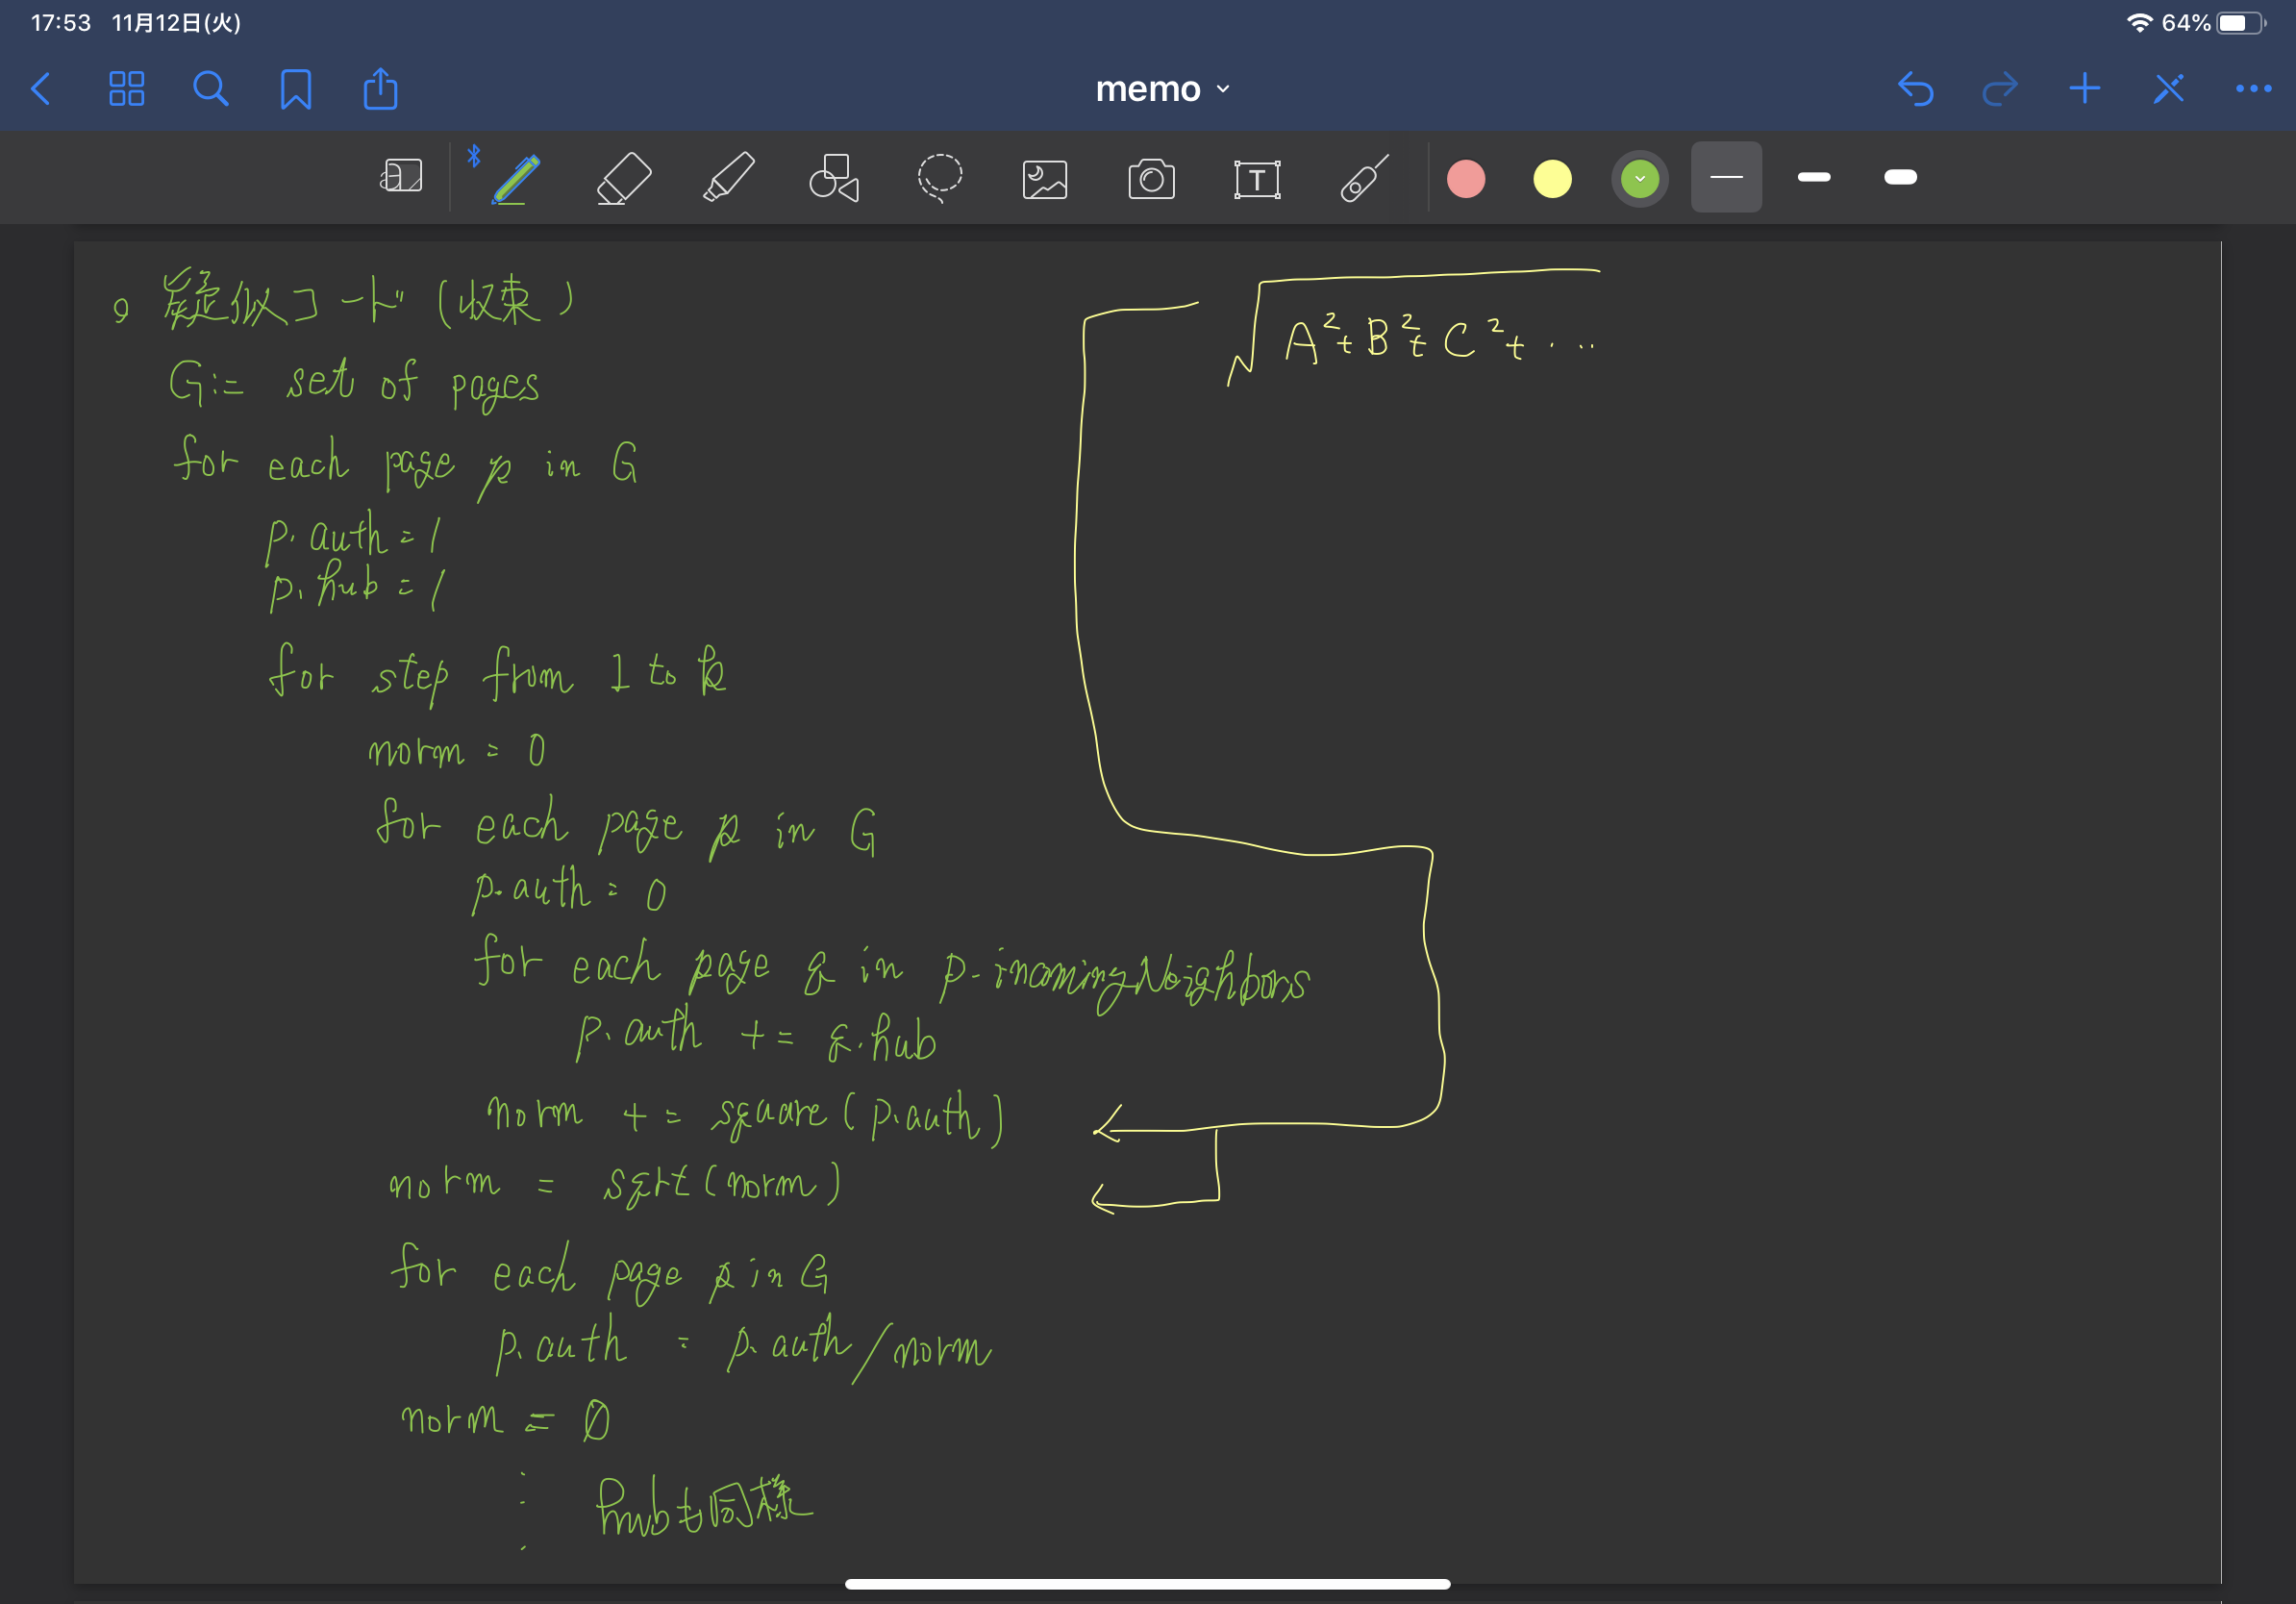 17:53 11月12日(火) 64%
memo
T
。疑似コード (収束)
G:= set of pages
for each page p in G
p.auth = 1
p.hub = 1
for step from 1 to k
norm = 0
for each page p in G
p.auth = 0
for each page q in p.incomingNeighbors
p.auth += q.hub
norm += square(p.auth)
norm = sqrt(norm)
for each page p in G
p.auth = p.auth/norm
norm = 0
⋮ hubも同様
√A²+B²+C²+...